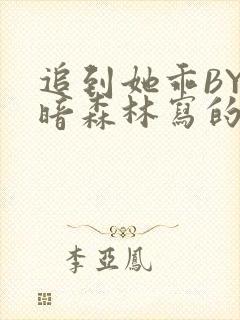 追到她乖BY
暗森林寫的
李亞鳳